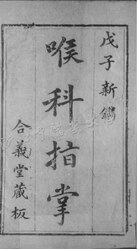 戊子新鐫
喉科指掌
合義堂藏板